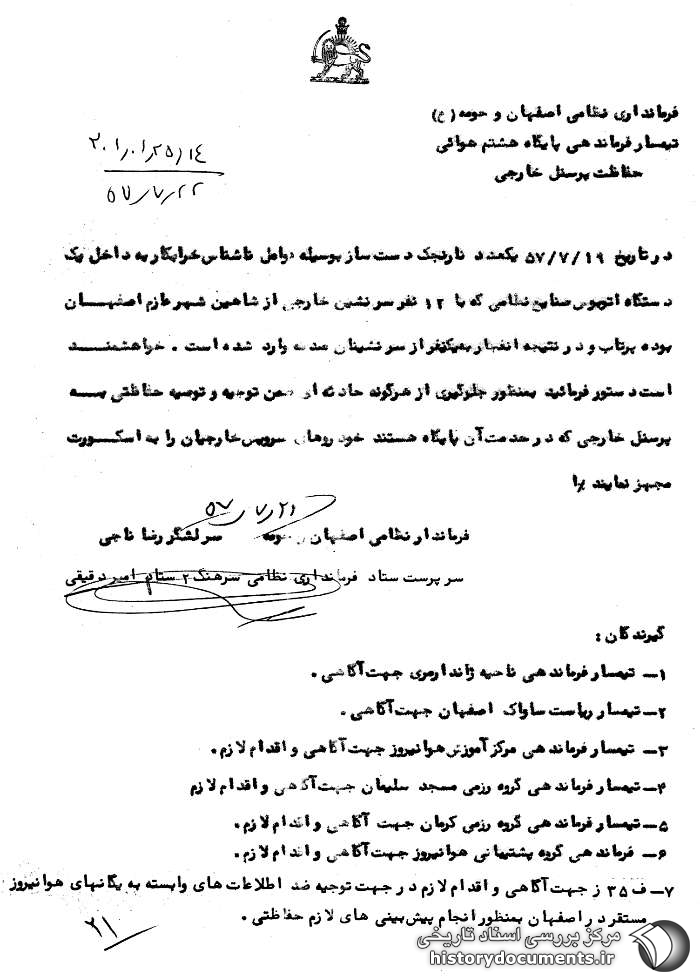 فرمانداری نظامی اصفهان و حومه (ع)
تیمسار فرماندهی پایگاه هشتم هوائی
حفاظت پرسنل خارجی
۲۰۱٫۰۱٫۲۵٫۱۴
۵۷٫۷٫۲۲
در تاریخ ۵۷/۷/۱۹ یکعدد نارنجک دست ساز بوسیله عوامل ناشناس خرابکار به داخل یک
دستگاه اتوبوس صنایع نظامی که با ۱۲ نفر سرنشین خارجی از شاهین شهر عازم اصفهان
بوده پرتاب و در نتیجه انفجار به یکنفر از سرنشینان صدمه وارد شده است . خواهشمند
است دستور فرمائید بمنظور جلوگیری از هرگونه حادثه ای ضمن توجیه و توصیه حفاظتی به
پرسنل خارجی که در خدمت آن پایگاه هستند خودروهای سرویس خارجیان را به اسکورت
مجهز نمایند
۵۷٫۷٫۲۱
فرماندار نظامی اصفهان و حومه سرلشگر رضا ناجی
سرپرست ستاد فرمانداری نظامی سرهنگ ۲ ستاد امیر دقیقی
گیرندگان :
۱ــ تیمسار فرماندهی ناحیه ژاندارمری جهت آگاهی .
۲ــ تیمسار ریاست ساواک اصفهان جهت آگاهی .
۳ــ تیمسار فرماندهی مرکز آموزش هوانیروز جهت آگاهی و اقدام لازم .
۴ــ تیمسار فرماندهی گروه رزمی مسجد سلیمان جهت آگاهی و اقدام لازم
۵ــ تیمسار فرماندهی گروه رزمی کرمان جهت آگاهی و اقدام لازم .
۶ــ فرماندهی گروه پشتیبانی هوانیروز جهت آگاهی و اقدام لازم .
۷ــ ف ۳۵ ز جهت آگاهی و اقدام لازم در جهت توجیه ضد اطلاعات های وابسته به یگانهای هوانیروز
مستقر در اصفهان بمنظور انجام پیش بینی های لازم حفاظتی .
۲۱
مرکز بررسی اسناد تاریخی
historydocuments.ir